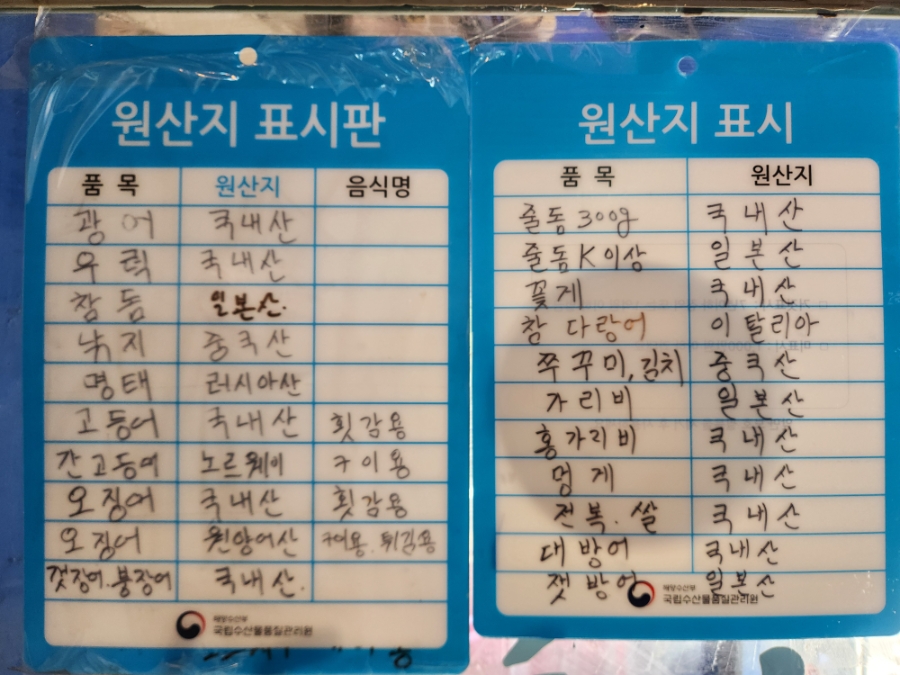 원산지 표시판
품 목 원산지 음식명
광 어 국내산
우 럭 국내산
참 돔 일본산.
낙 지 중국산
명 태 러시아산
고등어 국내산 횟감용
간고등어 노르웨이 구이용
오징어 국내산 횟감용
오징어 원양어산 구이용. 튀김용
갯장어.붕장어 국내산.
해양수산부
국립수산물품질관리원
원산지 표시
품 목 원산지
줄돔 300g 국내산
줄돔 K이상 일본산
꽃게 국내산
참 다랑어 이탈리아
쭈꾸미,김치 중국산
가리비 일본산
홍가리비 국내산
멍게 국내산
전복.쌀 국내산
대방어 국내산
잿방어 일본산
해양수산부
국립수산물품질관리원